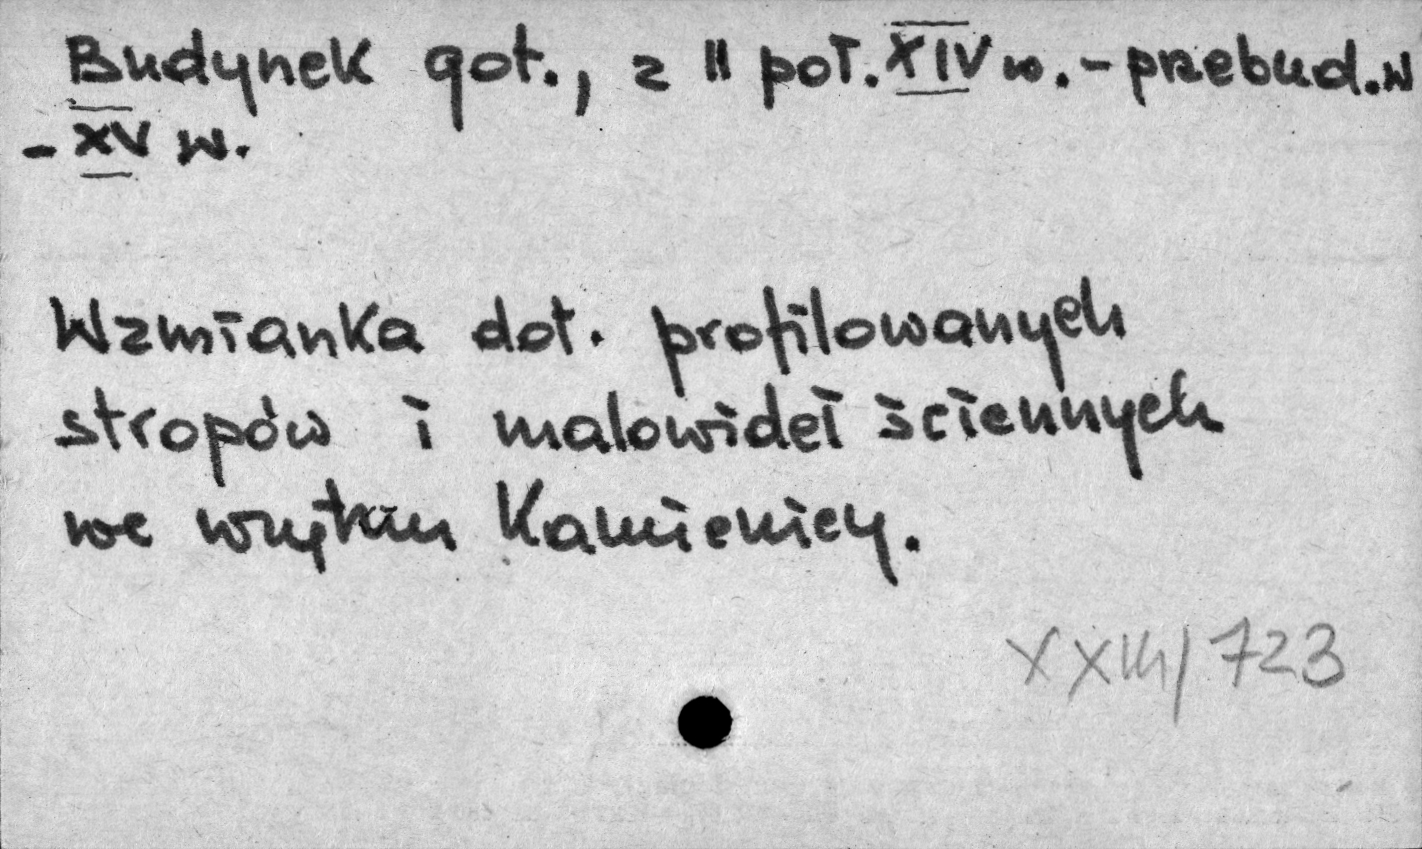 Budynek got., z II poł. XIV w. - przebud. w
- XV w.
Wzmianka dot. profilowanych
stropów i malowideł ściennych
we wnętrzu Kamienicy.
XXIII/723